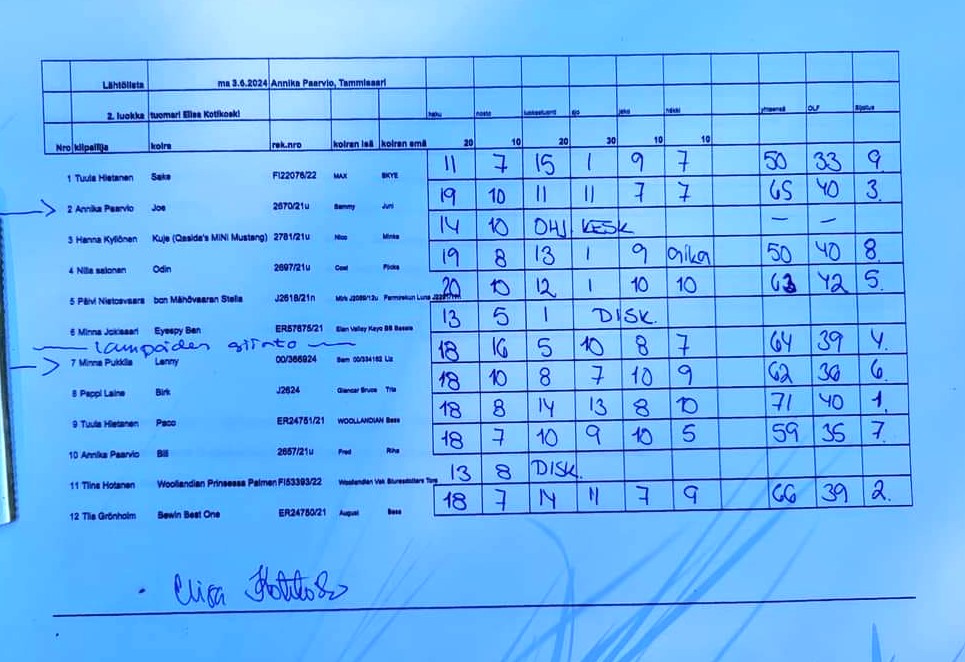 Lähtölista ma 3.6.2024 Annika Paarvio, Tammisaari
2. luokka tuomari Elisa Kotikoski haku nosto ajo jako häkki yhteensä OLF Sijoitus
Nro kilpailija koira rek.nro koiran isä koiran emä 20 10 20 30 10 10
1 Tuula Hietanen Sake FI22076/22 MAX SKYE 11 7 15 1 9 7 50 33 9.
2 Annika Paarvio Joe 2670/21u Sammy Juni 19 10 11 11 7 7 65 40 3.
3 Hanna Kyllönen Kuje (Qasida's MINI Mustang) 2781/21u Nico Minka 14 10 OHJ. KESK – –
4 Nilla salonen Odin 2697/21u 19 8 13 1 9 aika 50 40 8.
5 Päivi Nietosvaara bon Mähövaaran Stella J2618/21n 20 10 12 1 10 10 63 42 5.
6 Minna Jokisaari Eyespy Ben ER57675/21 13 5 1 DISK.
— lampaiden siirto —
7 Minna Pukkila Lenny 00/366924 Sam 00/334183 Liz 18 16 5 10 8 7 64 39 4.
8 Peppi Laine Birk J2624 Glencar Bruce 18 10 8 7 10 9 62 36 6.
9 Tuula Hietanen Paco ER24751/21 WOOLLANDIAN Bess 18 8 14 13 8 10 71 40 1.
10 Annika Paarvio Bill 2657/21u Fred 18 7 10 9 10 5 59 35 7.
11 Tiina Hotanen Woollandian Prinsessa Palmen FI53393/22 13 8 DISK.
12 Tiia Grönholm Bewin Best One ER24750/21 August Bess 18 7 14 11 7 9 66 39 2.
Elisa Kotikoski